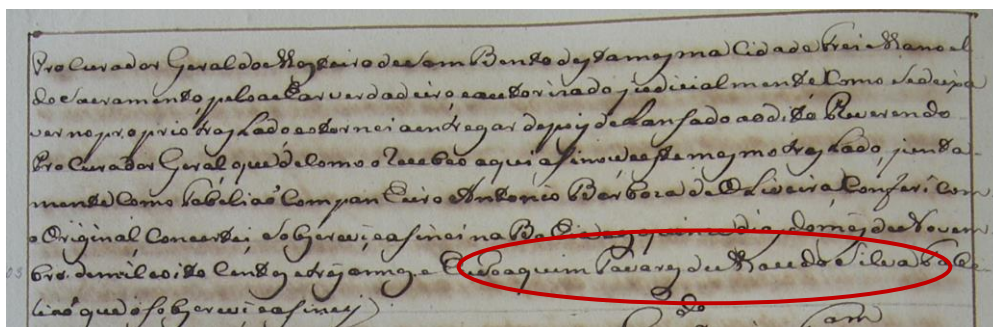 Procurador Geral do Mosteiro de Sam Bento desta mesma Cidade Frei Manoel
do Sacramento, pelo achar verdadeiro, e autorizado judicialmente como se deixa
ver no proprio treslado e o tornei a entregar depois de Lansado ao dito Reverendo
Procurador Geral que de como o recebeo aqui asinou e este mesmo treslado, junta
mente com o Tabeliaõ Companheiro Antonio Barboza de Oliveira Conferi com
o Original, Concertei, sobscrevi, e asinei na Bahia aos quinze dias do mes de Novem
bro de mil e oito Centos e tres annos, e Eu Joaquim Tavares de Macedo Silva Tabe
liaõ que o sobscrevi e asinei